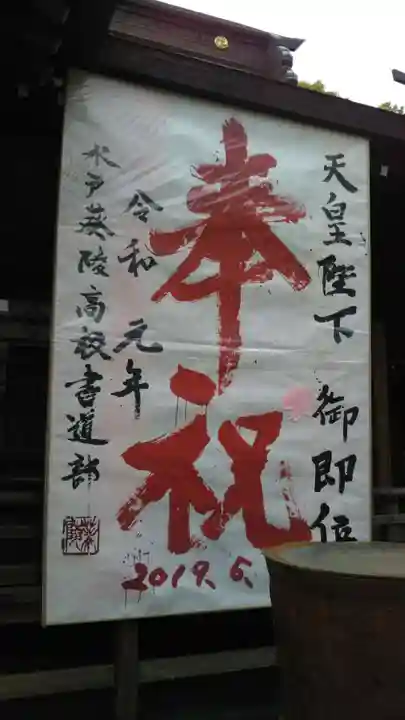 天皇陛下 御即位
奉祝
令和 元年
水戸葵陵高校書道部
2019.6.